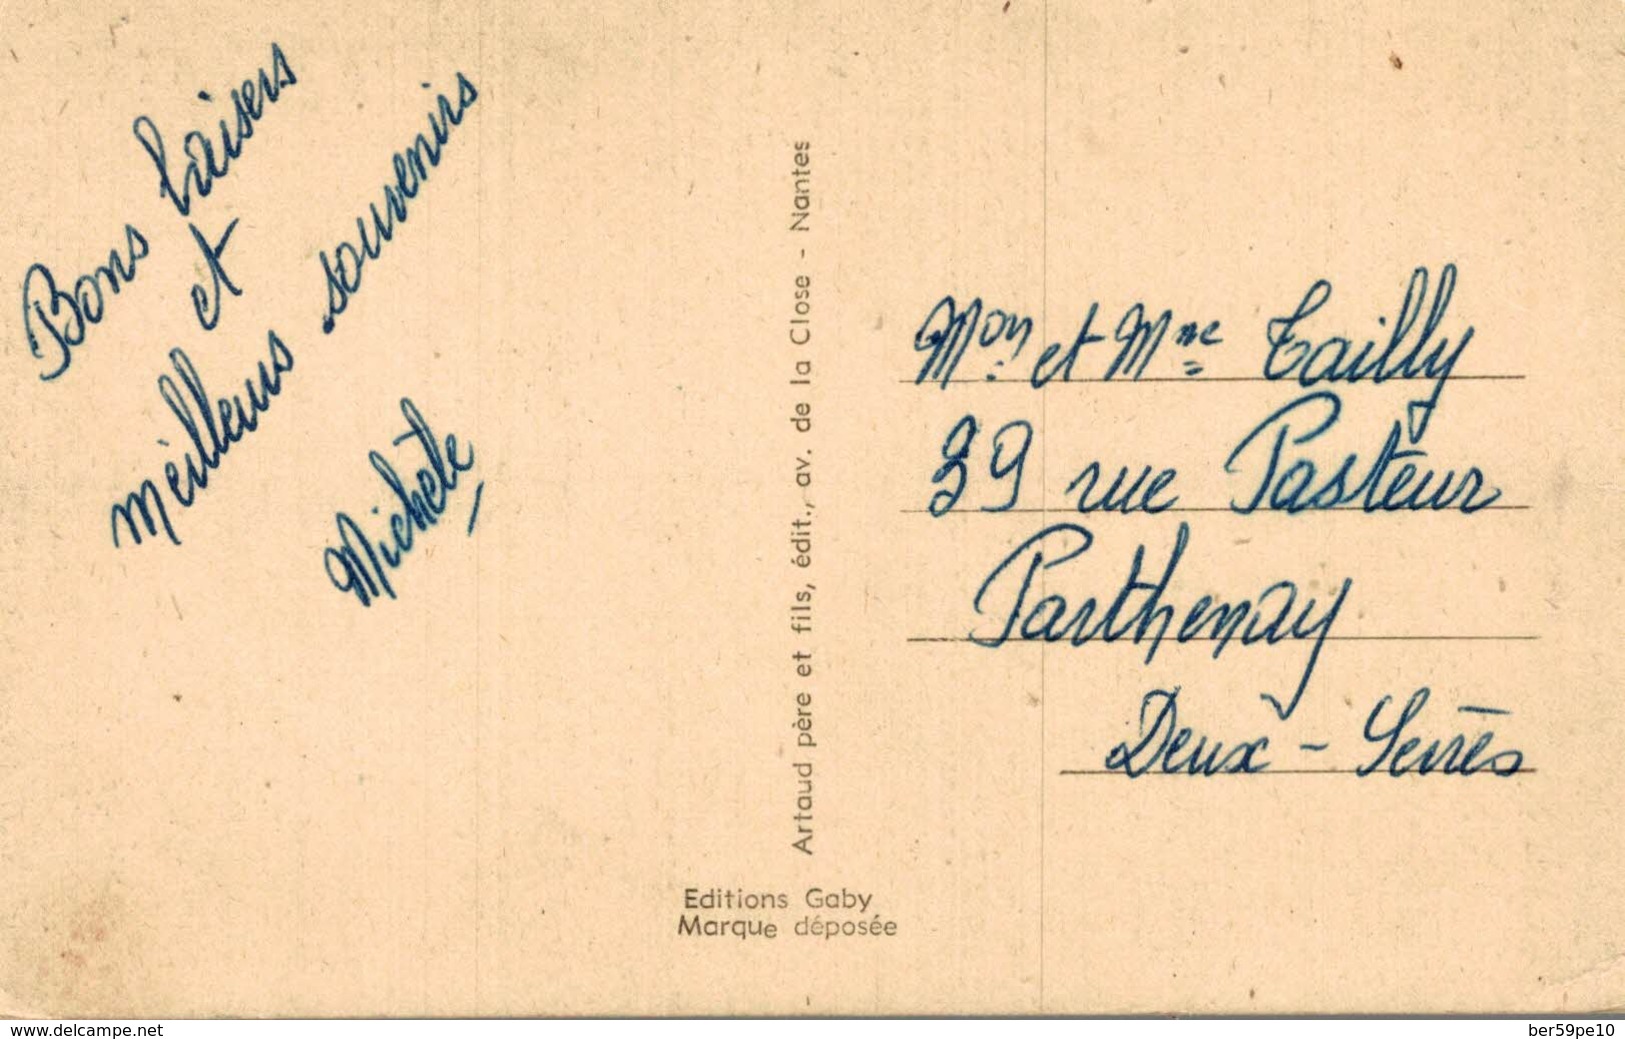 Bons baisers
et
meilleurs souvenirs
Michèle
Artaud père et fils, édit., av. de la Close - Nantes
Editions Gaby
Marque déposée
Mon et Mme Tailly
39 rue Pasteur
Parthenay
Deux-Sèvres
www.delcampe.net
ber59pe10